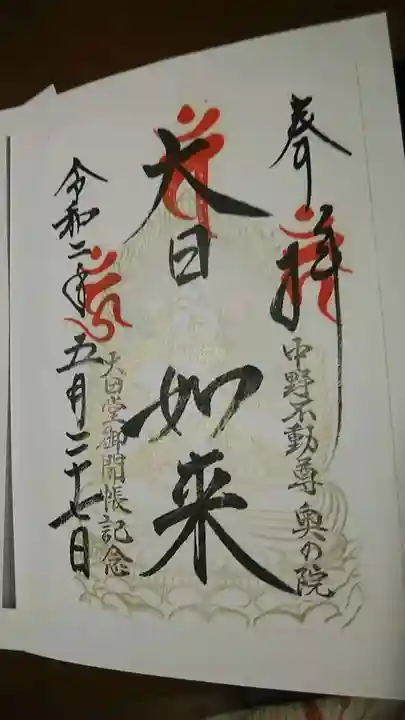 奉拝
中野不動尊奥の院
大日如来
大日堂御開帳記念
令和二年五月二十七日